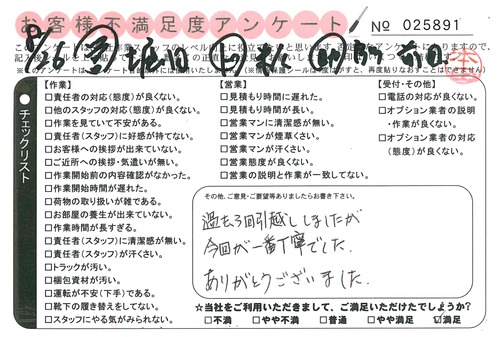 お客様不満足度アンケート
No 025891
8/26
チェックリスト
【作業】
□責任者の対応(態度)が良くない。
□他のスタッフの対応(態度)が良くない。
□作業を見ていて不安がある。
□責任者(スタッフ)に好感が持てない。
□お客様への挨拶が出来ていない。
□ご近所への挨拶・気遣いが無い。
□作業開始前の内容確認がなかった。
□作業開始時間が遅れた。
□荷物の取り扱いが雑である。
□お部屋の養生が出来ていない。
□作業時間が長すぎる。
□責任者(スタッフ)に清潔感が無い。
□責任者(スタッフ)が汗くさい。
□トラックが汚い。
□梱包資材が汚い。
□運転が不安(下手)である。
□靴下の履き替えをしてない。
□スタッフにやる気がみられない。
【営業】
□見積もり時間に遅れた。
□見積もり時間が長い。
□営業マンに清潔感が無い。
□営業マンが煙草くさい。
□営業マンが汗くさい。
□営業態度が良くない。
□営業の説明と作業が一致してない。
【受付・その他】
□電話の対応が良くない。
□オプション業者の説明
・作業が良くない。
□オプション業者の対応
(態度)が良くない。
その他、ご意見・ご要望等ありましたらお書き下さい。
過去3回引越ししましたが
今回が一番丁寧でした。
ありがとうございました。
☆当社をご利用いただきまして、ご満足いただけたでしょうか?
□不満 □やや不満 □普通 □やや満足 ☑満足